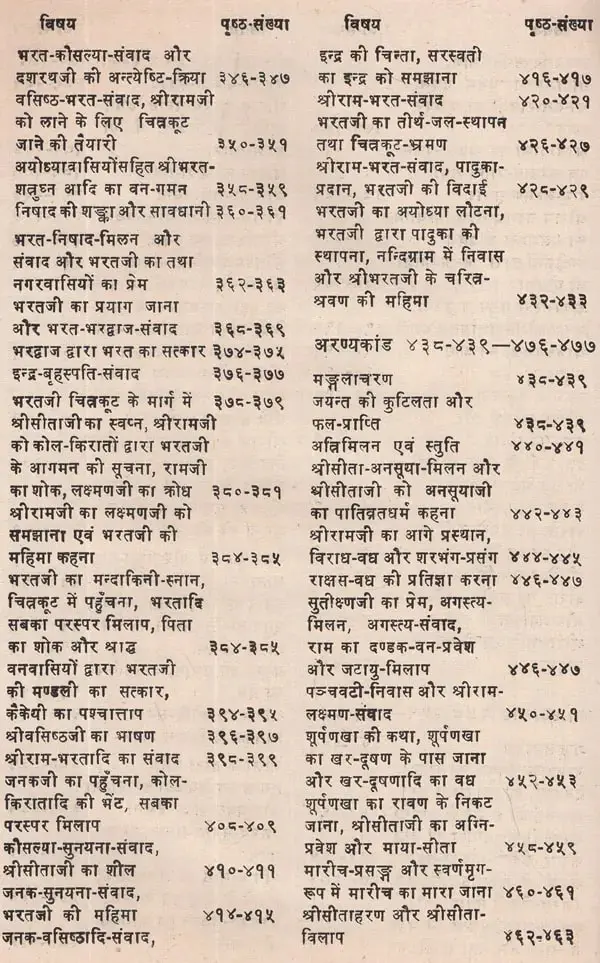 विषय पृष्ठ-संख्या
भरत-कौसल्या-संवाद और
दशरथजी की अन्त्येष्टि-क्रिया ३४६-३४७
वसिष्ठ-भरत-संवाद, श्रीरामजी
को लाने के लिए चित्रकूट
जाने की तैयारी ३५०-३५१
अयोध्यावासियोंसहित श्रीभरत-
शत्रुघ्न आदि का वन-गमन ३५८-३५९
निषाद की शङ्का और सावधानी ३६०-३६१
भरत-निषाद-मिलन और
संवाद और भरतजी का तथा
नगरवासियों का प्रेम ३६२-३६३
भरतजी का प्रयाग जाना
और भरत-भरद्वाज-संवाद ३६८-३६९
भरद्वाज द्वारा भरत का सत्कार ३७४-३७५
इन्द्र-बृहस्पति-संवाद ३७६-३७७
भरतजी चित्रकूट के मार्ग में ३७८-३७९
श्रीसीताजी का स्वप्न, श्रीरामजी
को कोल-किरातों द्वारा भरतजी
के आगमन की सूचना, रामजी
का शोक, लक्ष्मणजी का क्रोध ३८०-३८१
श्रीरामजी का लक्ष्मणजी को
समझाना एवं भरतजी की
महिमा कहना ३८४-३८५
भरतजी का मन्दाकिनी-स्नान,
चित्रकूट में पहुँचना, भरतादि
सबका परस्पर मिलाप, पिता
का शोक और श्राद्ध ३८४-३८५
वनवासियों द्वारा भरतजी
की मण्डली का सत्कार,
कैकेयी का पश्चात्ताप ३९४-३९५
श्रीवसिष्ठजी का भाषण ३९६-३९७
श्रीराम-भरतादि का संवाद ३९८-३९९
जनकजी का पहुँचना, कोल-
किरातादि की भेंट, सबका
परस्पर मिलाप ४०८-४०९
कौसल्या-सुनयना-संवाद,
श्रीसीताजी का शील ४१०-४११
जनक-सुनयना-संवाद,
भरतजी की महिमा ४१४-४१५
जनक-वसिष्ठादि-संवाद,
विषय पृष्ठ-संख्या
इन्द्र की चिन्ता, सरस्वती
का इन्द्र को समझाना ४१६-४१७
श्रीराम-भरत-संवाद ४२०-४२१
भरतजी का तीर्थ-जल-स्थापन
तथा चित्रकूट-भ्रमण ४२६-४२७
श्रीराम-भरत-संवाद, पादुका-
प्रदान, भरतजी की विदाई ४२८-४२९
भरतजी का अयोध्या लौटना,
भरतजी द्वारा पादुका की
स्थापना, नन्दिग्राम में निवास
और श्रीभरतजी के चरित्र-
श्रवण की महिमा ४३२-४३३
अरण्यकांड ४३८-४३९—४७६-४७७
मङ्गलाचरण ४३८-४३९
जयन्त की कुटिलता और
फल-प्राप्ति ४३८-४३९
अत्रिमिलन एवं स्तुति ४४०-४४१
श्रीसीता-अनसूया-मिलन और
श्रीसीताजी को अनसूयाजी
का पातिव्रतधर्म कहना ४४२-४४३
श्रीरामजी का आगे प्रस्थान,
विराध-वध और शरभंग-प्रसंग ४४४-४४५
राक्षस-वध की प्रतिज्ञा करना ४४६-४४७
सुतीक्ष्णजी का प्रेम, अगस्त्य-
मिलन, अगस्त्य-संवाद,
राम का दण्डक-वन-प्रवेश
और जटायु-मिलाप ४४६-४४७
पञ्चवटी-निवास और श्रीराम-
लक्ष्मण-संवाद ४५०-४५१
शूर्पणखा की कथा, शूर्पणखा
का खर-दूषण के पास जाना
और खर-दूषणादि का वध ४५२-४५३
शूर्पणखा का रावण के निकट
जाना, श्रीसीताजी का अग्नि-
प्रवेश और माया-सीता ४५८-४५९
मारीच-प्रसङ्ग और स्वर्णमृग-
रूप में मारीच का मारा जाना ४६०-४६१
श्रीसीताहरण और श्रीसीता-
विलाप ४६२-४६३